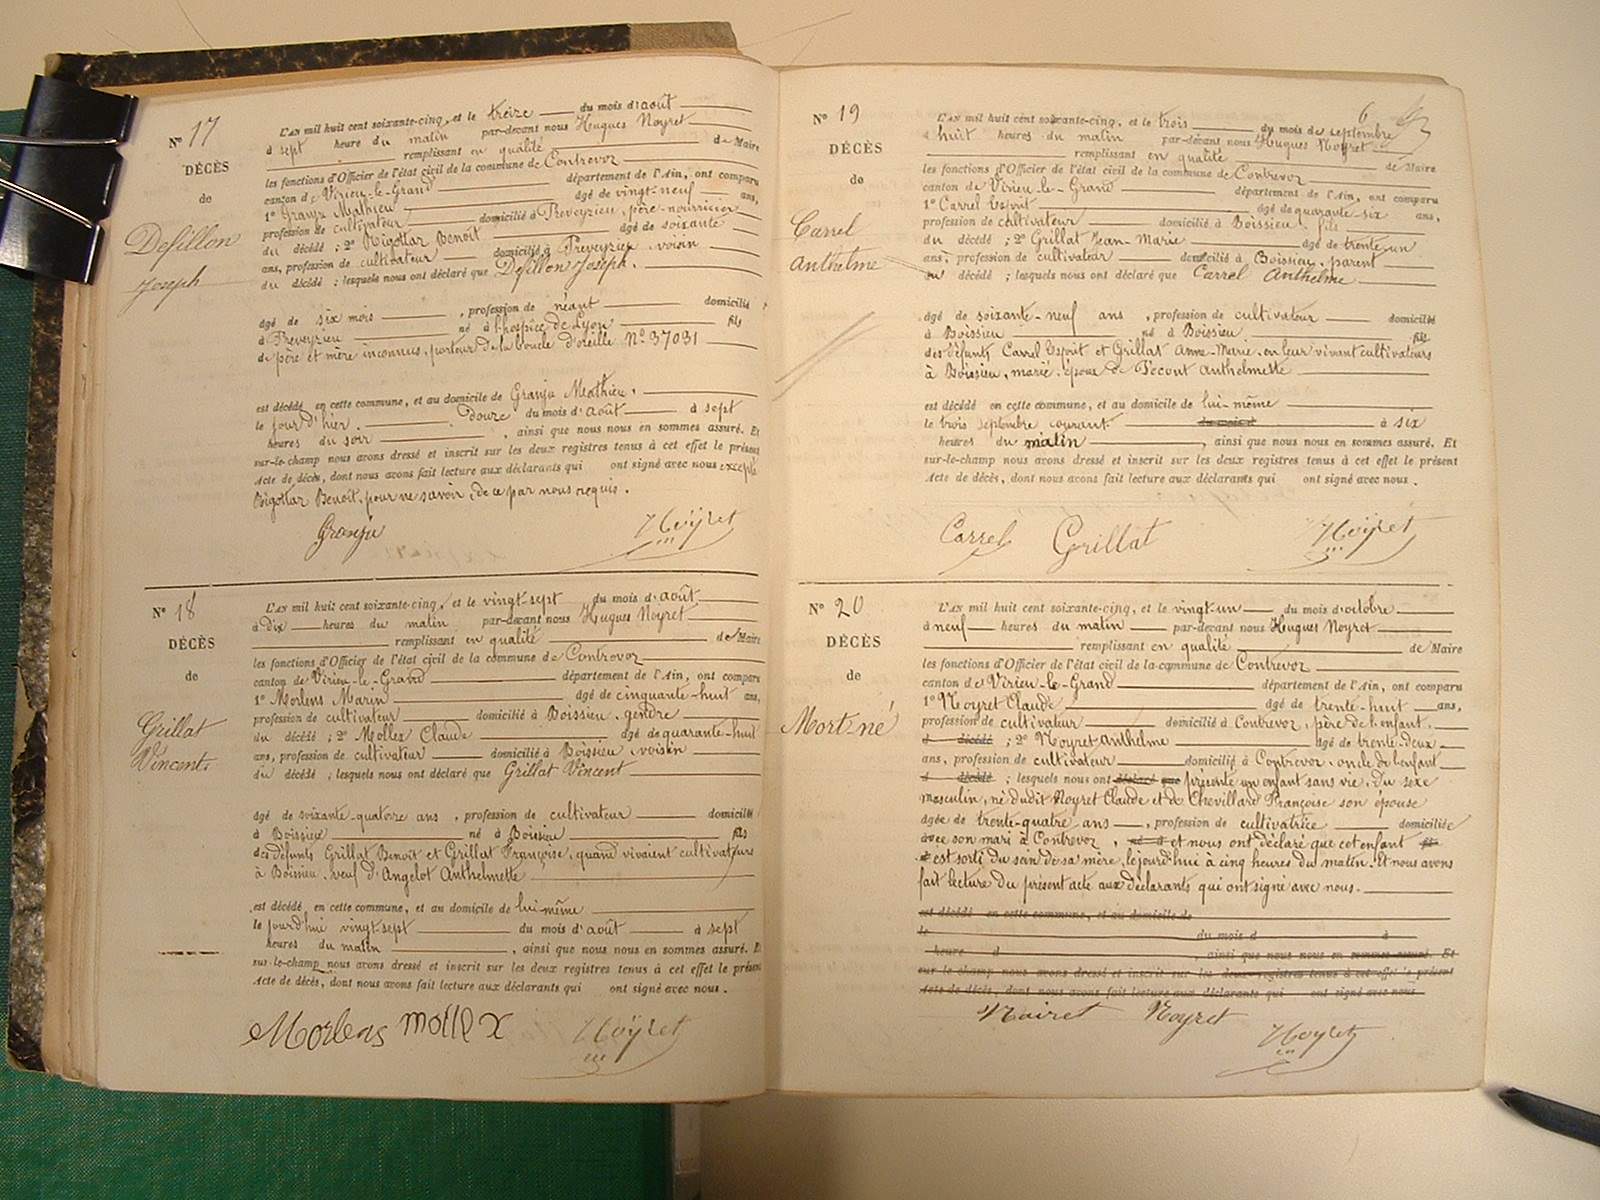 N° 17
DÉCÈS
de
Desillon
Joseph
L'AN mil huit cent soixante-cinq, et le treize du mois d'août
à sept heure du matin par-devant nous Hugues Noyret
remplissant en qualité de Maire
les fonctions d'Officier de l'état civil de la commune de Contrevoz
canton de Virieu-le-Grand département de l'Ain, ont comparu
1° Granju Mathieu âgé de vingt-neuf ans,
profession de cultivateur domicilié à Preveyzieu, père-nourricier
du décédé ; 2° Bigottar Benoît âgé de soixante
ans, profession de cultivateur domicilié à Preveyzieu, voisin
du décédé ; lesquels nous ont déclaré que Desillon Joseph.
âgé de six mois , profession de néant domicilié
à Preveyzieu né à l'hospice de Lyon fils
de père et mère inconnus, porteur de la boucle d'oreille N° 37031
est décédé en cette commune, et au domicile de Granju Mathieu,
le jour d'hier, douze du mois d'août à sept
heures du soir , ainsi que nous nous en sommes assuré. Et
sur-le-champ nous avons dressé et inscrit sur les deux registres tenus à cet effet le présent
Acte de décès, dont nous avons fait lecture aux déclarants qui ont signé avec nous excepté
Bigottar Benoît, pour ne savoir, de ce par nous requis.
Granju Noÿret
N° 18
DÉCÈS
de
Grillat
Vincent
L'AN mil huit cent soixante-cinq, et le vingt-sept du mois d'août
à dix heures du matin par-devant nous Hugues Noyret
remplissant en qualité de Maire
les fonctions d'Officier de l'état civil de la commune de Contrevoz
canton de Virieu-le-Grand département de l'Ain, ont comparu
1° Morlens Marin âgé de cinquante-huit ans,
profession de cultivateur domicilié à Boissieu, gendre
du décédé ; 2° Mollex Claude âgé de quarante-huit
ans, profession de cultivateur domicilié à Boissieu, voisin
du décédé ; lesquels nous ont déclaré que Grillat Vincent
âgé de soixante-quatorze ans , profession de cultivateur domicilié
à Boissieu né à Boissieu fils
des défunts Grillat Benoît et Grillat Françoise, quand vivaient cultivateurs
à Boissieu, veuf d'Angelot Anthelmette
est décédé en cette commune, et au domicile de lui-même
le jourd'hui vingt-sept du mois d'août à sept
heures du matin , ainsi que nous nous en sommes assuré. Et
sur-le-champ nous avons dressé et inscrit sur les deux registres tenus à cet effet le présent
Acte de décès, dont nous avons fait lecture aux déclarants qui ont signé avec nous.
Morlens mollex Noÿret
6
N° 19
DÉCÈS
de
Carrel
Anthelme
L'AN mil huit cent soixante-cinq, et le trois du mois de septembre
à huit heures du matin par-devant nous Hugues Noyret
remplissant en qualité de Maire
les fonctions d'Officier de l'état civil de la commune de Contrevoz
canton de Virieu-le-Grand département de l'Ain, ont comparu
1° Carrel Esprit âgé de quarante-six ans,
profession de cultivateur domicilié à Boissieu, fils
du décédé ; 2° Grillat Jean-Marie âgé de trente-un
ans, profession de cultivateur domicilié à Boissieu, parent
du décédé ; lesquels nous ont déclaré que Carrel Anthelme
âgé de soixante-neuf ans , profession de cultivateur domicilié
à Boissieu né à Boissieu fils
des défunts Carrel Esprit et Grillat Anne-Marie, en leur vivant cultivateurs
à Boissieu, marié, époux de Pécout Anthelmette
est décédé en cette commune, et au domicile de lui-même
le trois septembre courant du mois d à six
heures du matin , ainsi que nous nous en sommes assuré. Et
sur-le-champ nous avons dressé et inscrit sur les deux registres tenus à cet effet le présent
Acte de décès, dont nous avons fait lecture aux déclarants qui ont signé avec nous.
Carrel Grillat Noÿret
N° 20
DÉCÈS
de
Mort-né
L'AN mil huit cent soixante-cinq, et le vingt-un du mois d'octobre
à neuf heures du matin par-devant nous Hugues Noyret
remplissant en qualité de Maire
les fonctions d'Officier de l'état civil de la commune de Contrevoz
canton de Virieu-le-Grand département de l'Ain, ont comparu
1° Noyret Claude âgé de trente-huit ans,
profession de cultivateur domicilié à Contrevoz, père de l'enfant.
d décédé ; 2° Noyret Anthelme âgé de trente-deux
ans, profession de cultivateur domicilié à Contrevoz, oncle de l'enfant
d décédé ; lesquels nous ont déclaré que présenté un enfant sans vie, du sexe
masculin, né dudit Noyret Claude et de Chevillard Françoise son épouse
âgée de trente-quatre ans , profession de cultivatrice domiciliée
avec son mari à Contrevoz , né à et nous ont déclaré que cet enfant fils
d est sorti du sein de sa mère, le jourd'hui à cinq heures du matin. Et nous avons
fait lecture du présent acte aux déclarants qui ont signé avec nous.
est décédé en cette commune, et au domicile de
le du mois d à
heure d , ainsi que nous nous en sommes assuré. Et
sur-le-champ nous avons dressé et inscrit sur les deux registres tenus à cet effet le présent
Acte de décès, dont nous avons fait lecture aux déclarants qui ont signé avec nous
Nairet Noyret Noÿret